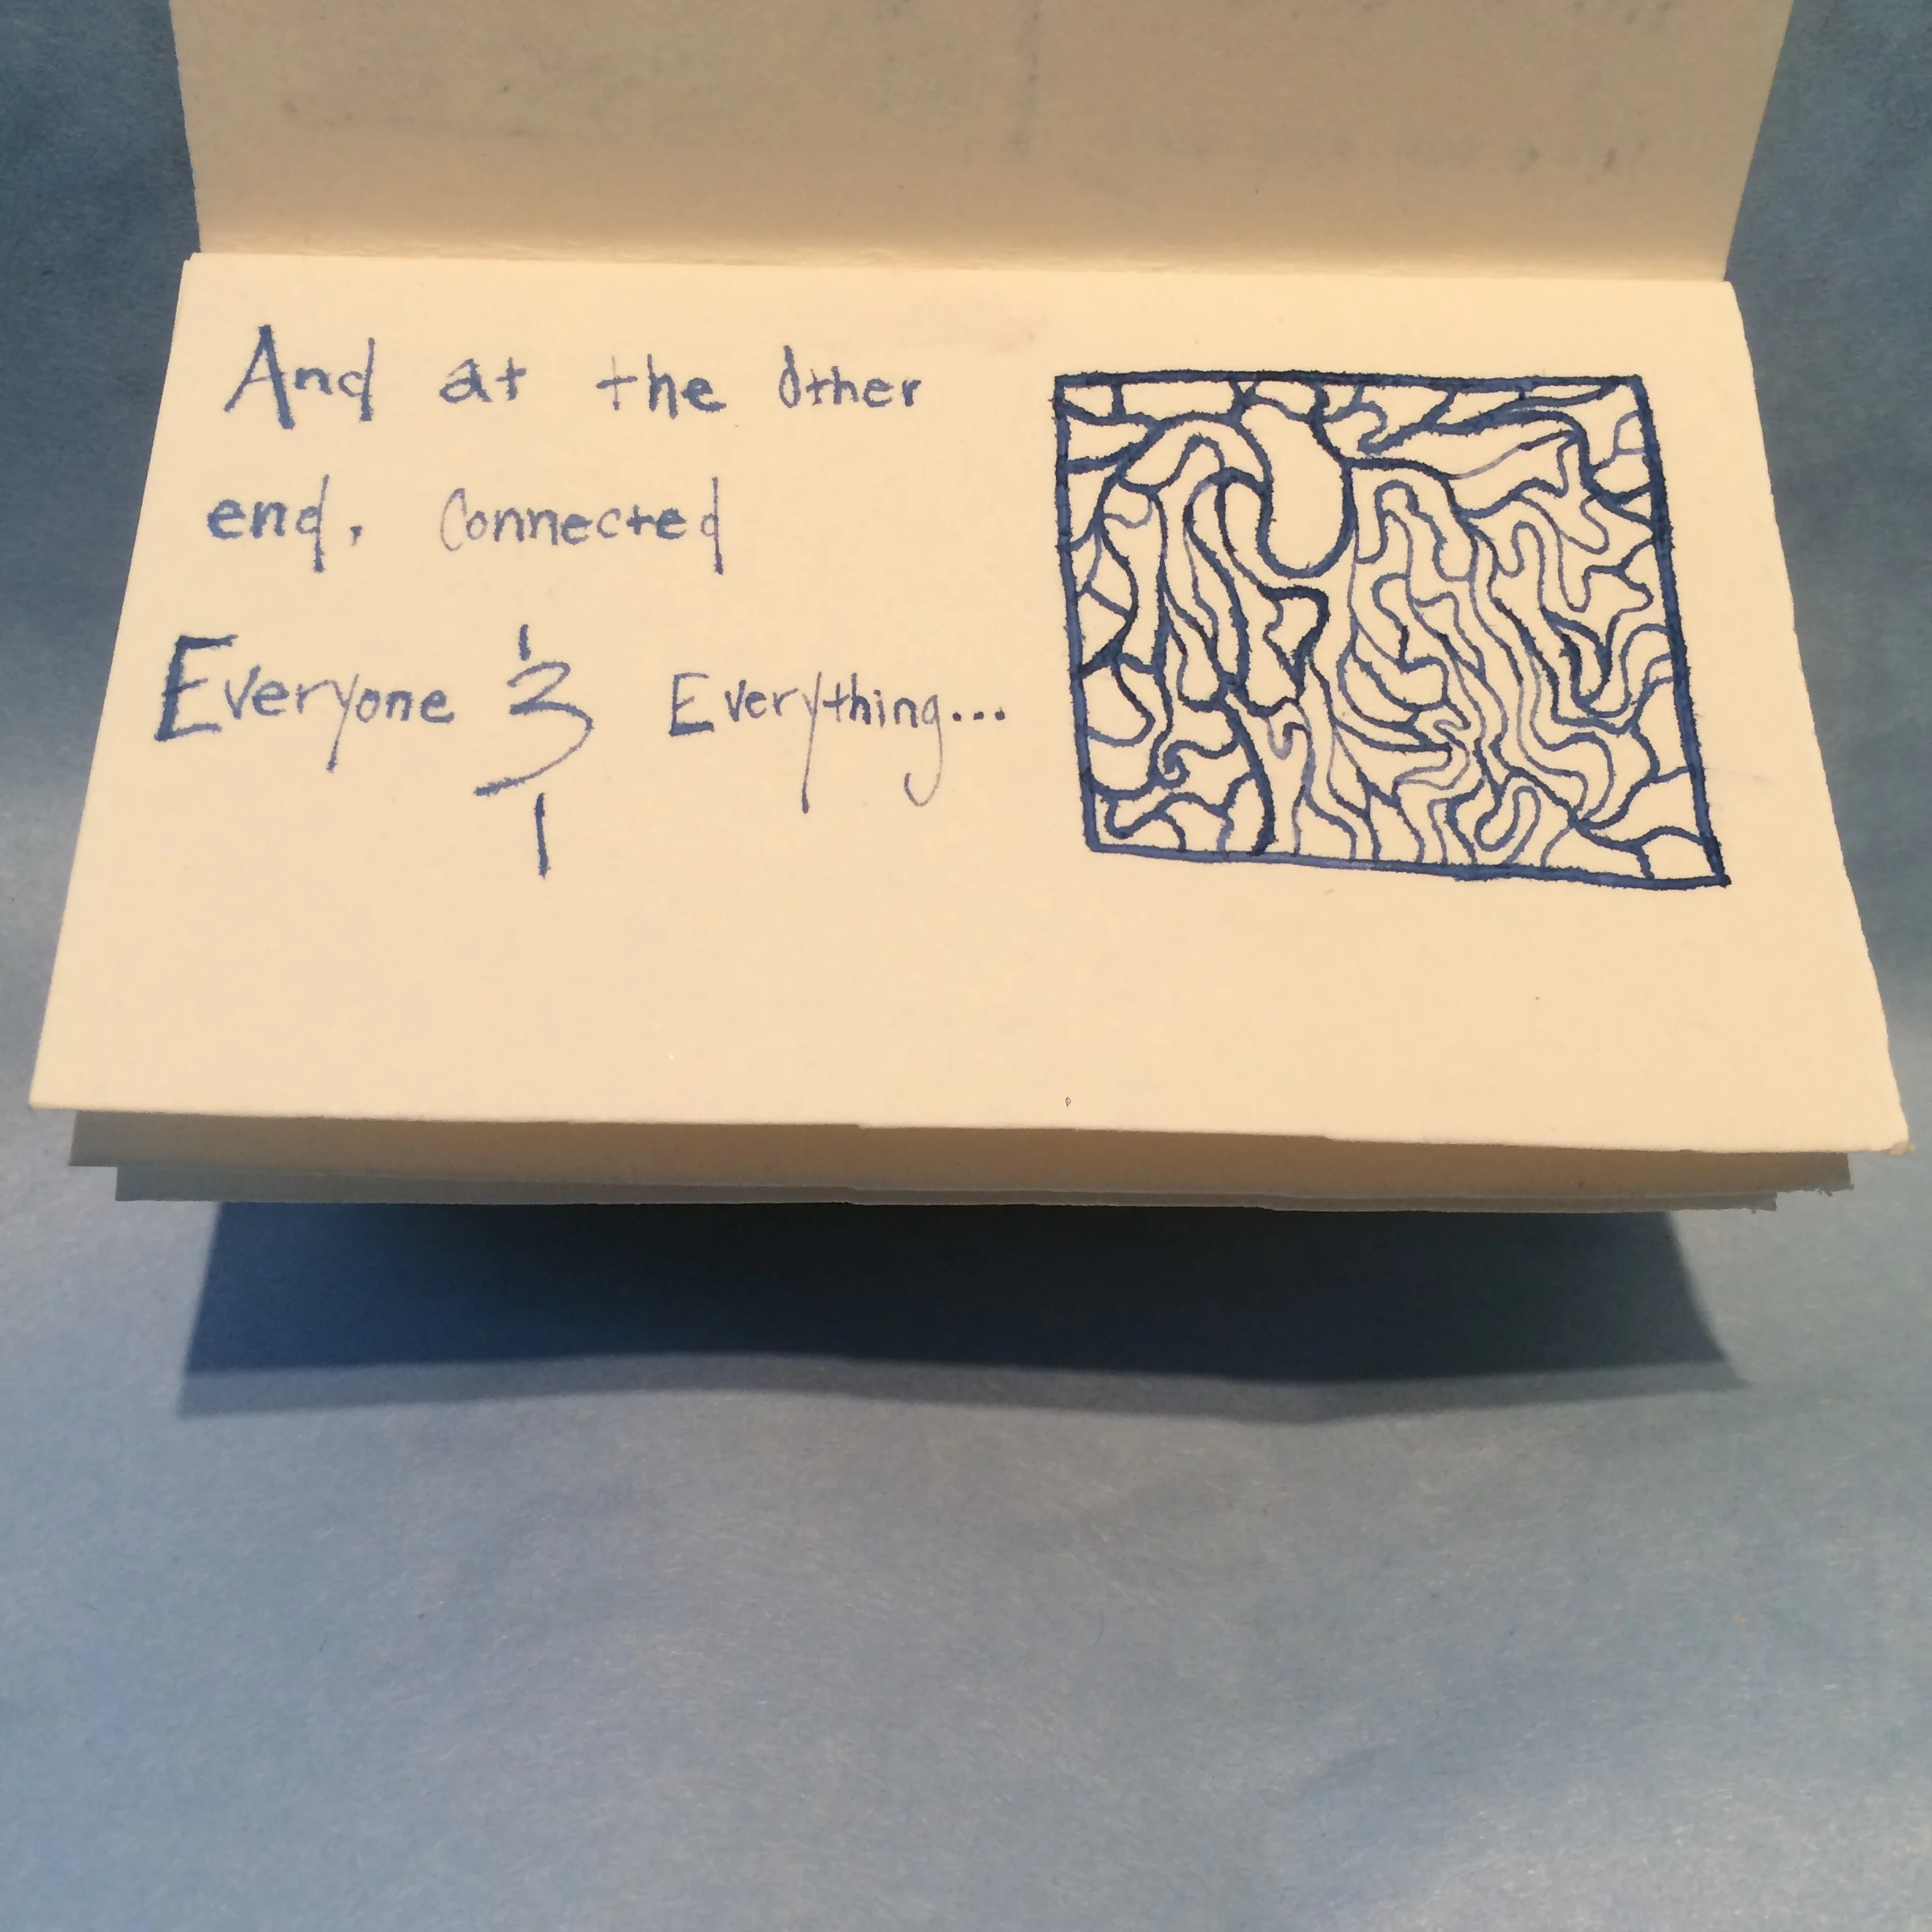 And at the other
end, Connected
Everyone & Everything...